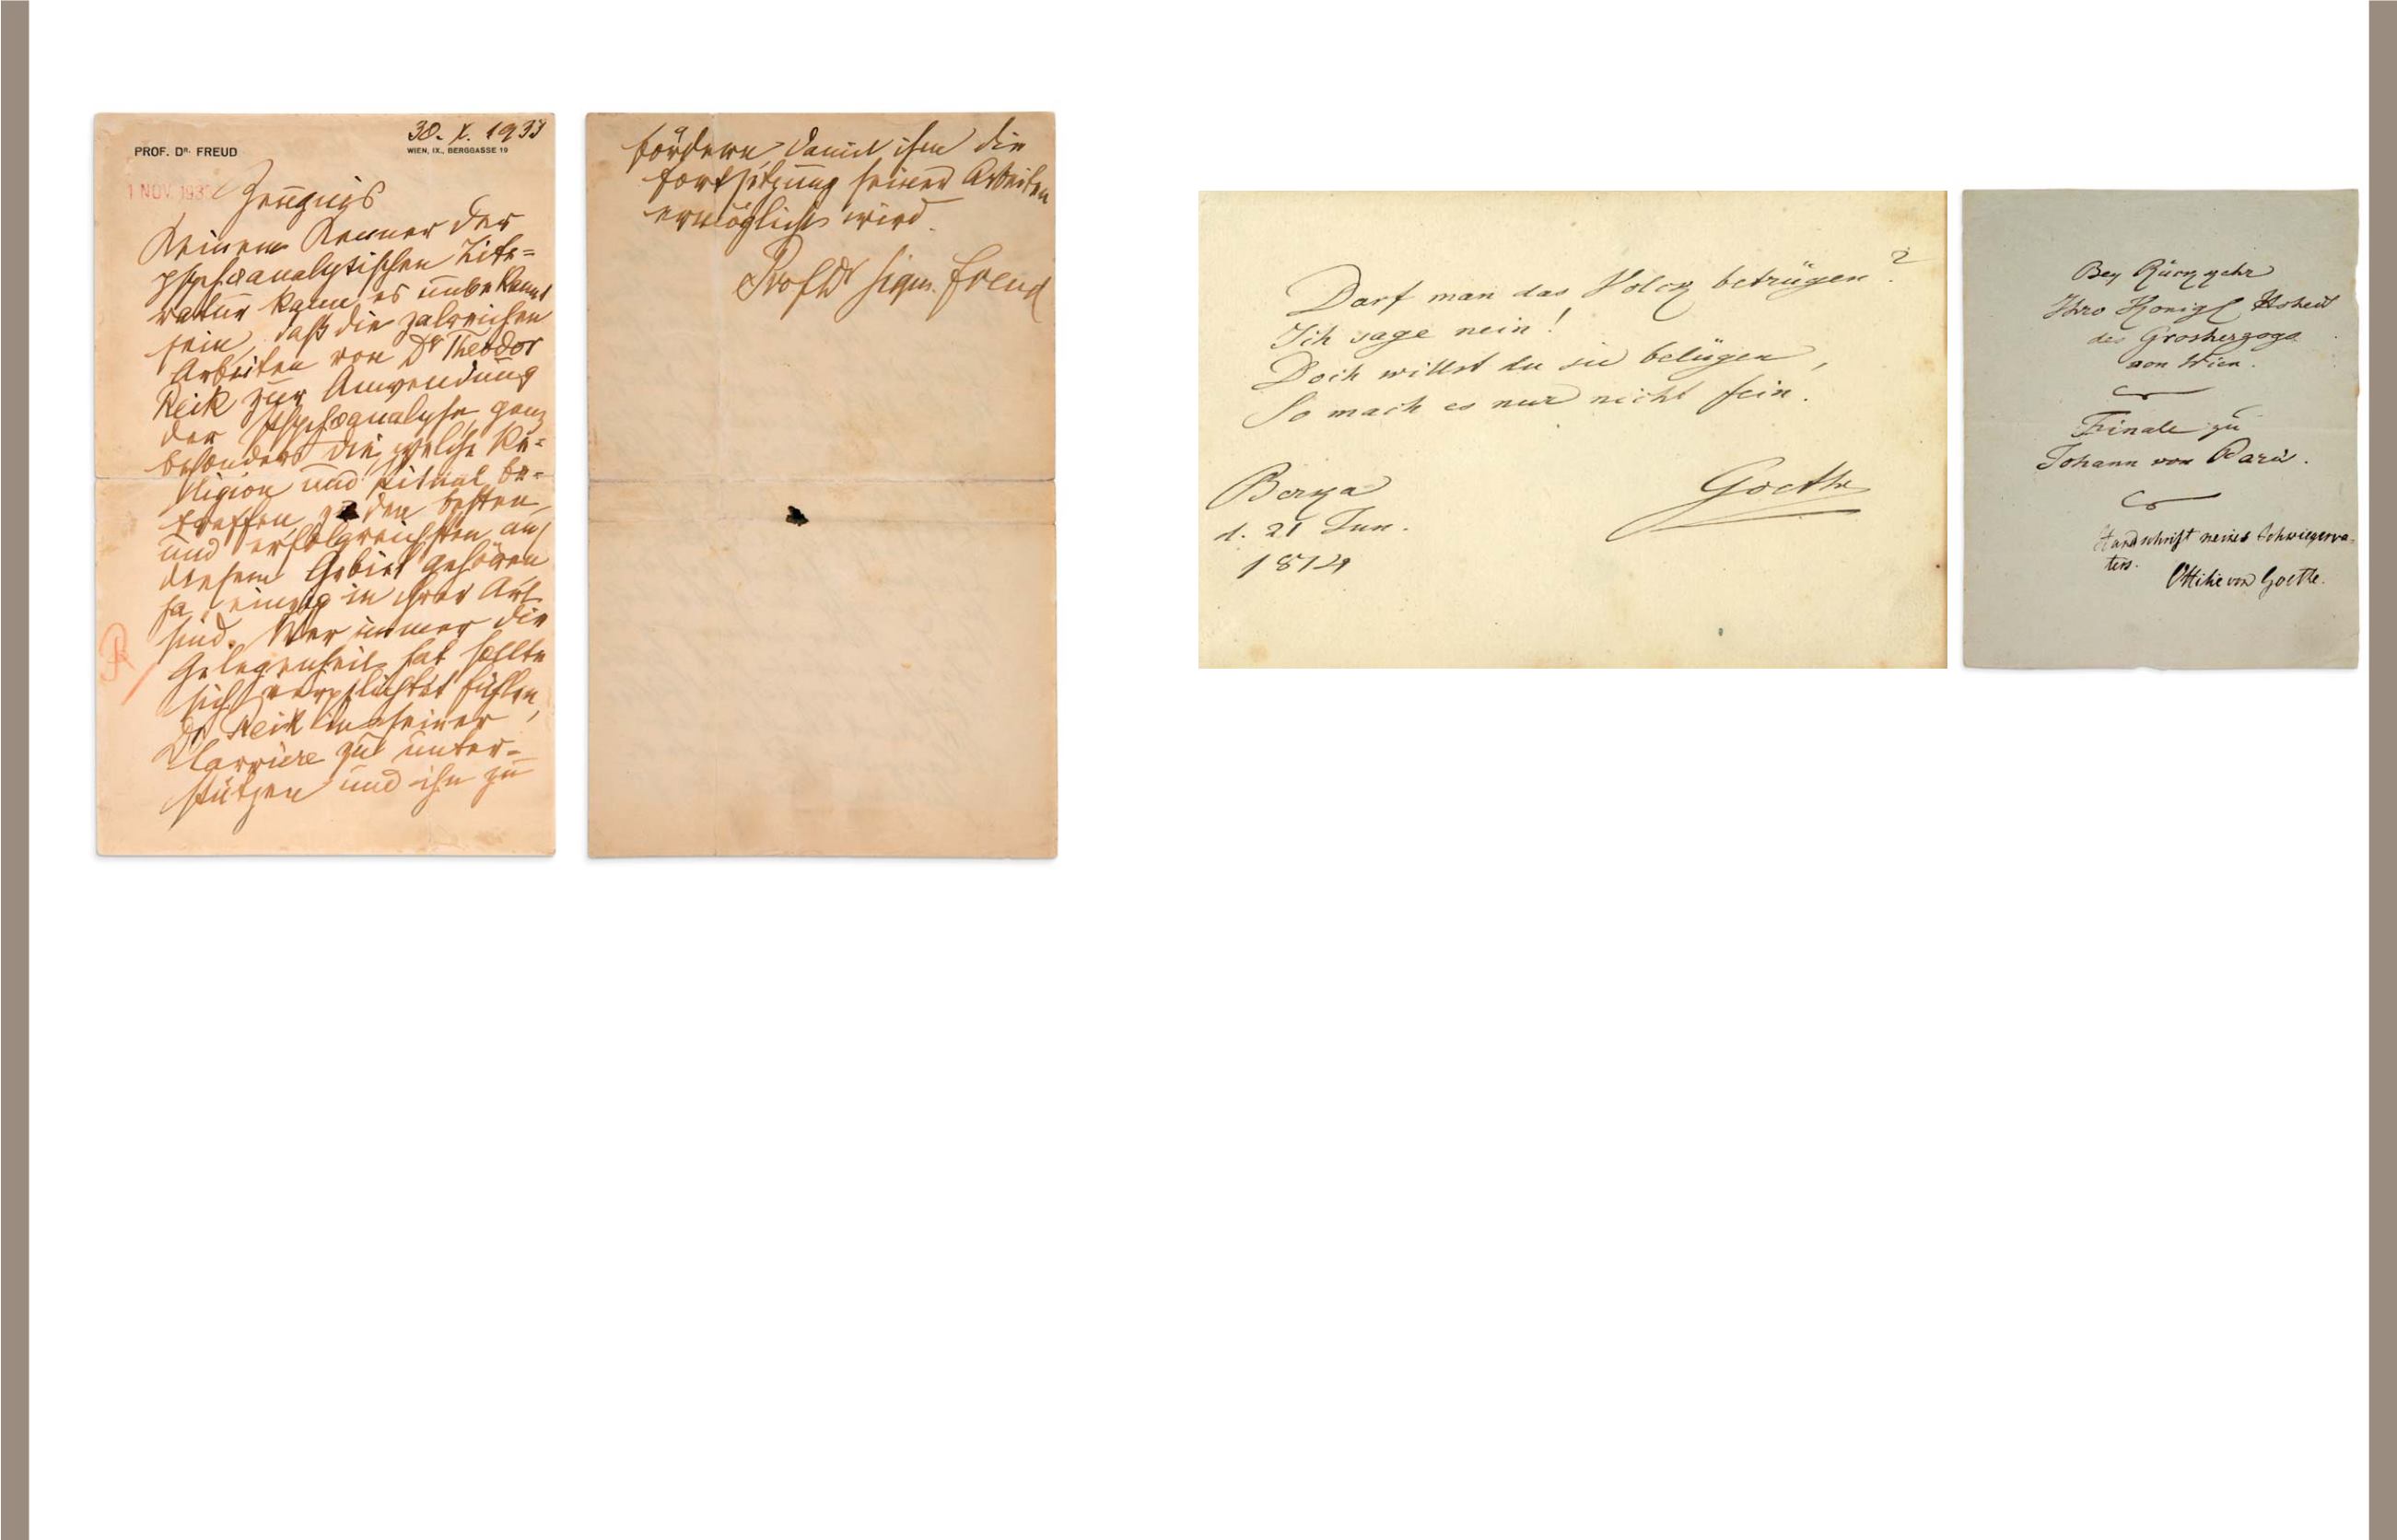 38. X. 1933
PROF. DR. FREUD
WIEN, IX., BERGGASSE 19
1 NOV. 193
Zeugnis
Keinem Kenner der
psychoanalytischen Lite=
ratur kann es unbekannt
sein, daß die zalreichen
Arbeiten von Dr Theodor
Reik zur Anwendung
der Psychoanalyse, ganz
besonders die, welche Re=
ligion und Ritual be=
treffen, zu den besten
und erfolgreichsten auf
diesem Gebiet gehören
ja, einzig in ihrer Art
sind. Wer immer die
Gelegenheit hat sollte
sich verpflichtet fühlen,
Dr Reik in seiner
Karriere zu unter=
stützen und ihn zu
R
fördern, damit ihm die
Fortsetzung seiner Arbeiten
ermöglicht wird.
Prof Dr Sigm. Freud
Darf man das Volck betrügen?
Ich sage nein!
Doch willst du sie belügen,
So mach es nur nicht fein.
Berka
d. 21 Jun.
1814
Goethe
Bey Rückkehr
Ihro Königl Hoheit
des Grosherzogs
von Wien.
Finale zu
Johann von Paris.
Handschrift meines Schwiegerva-
ters.
Ottilie von Goethe.